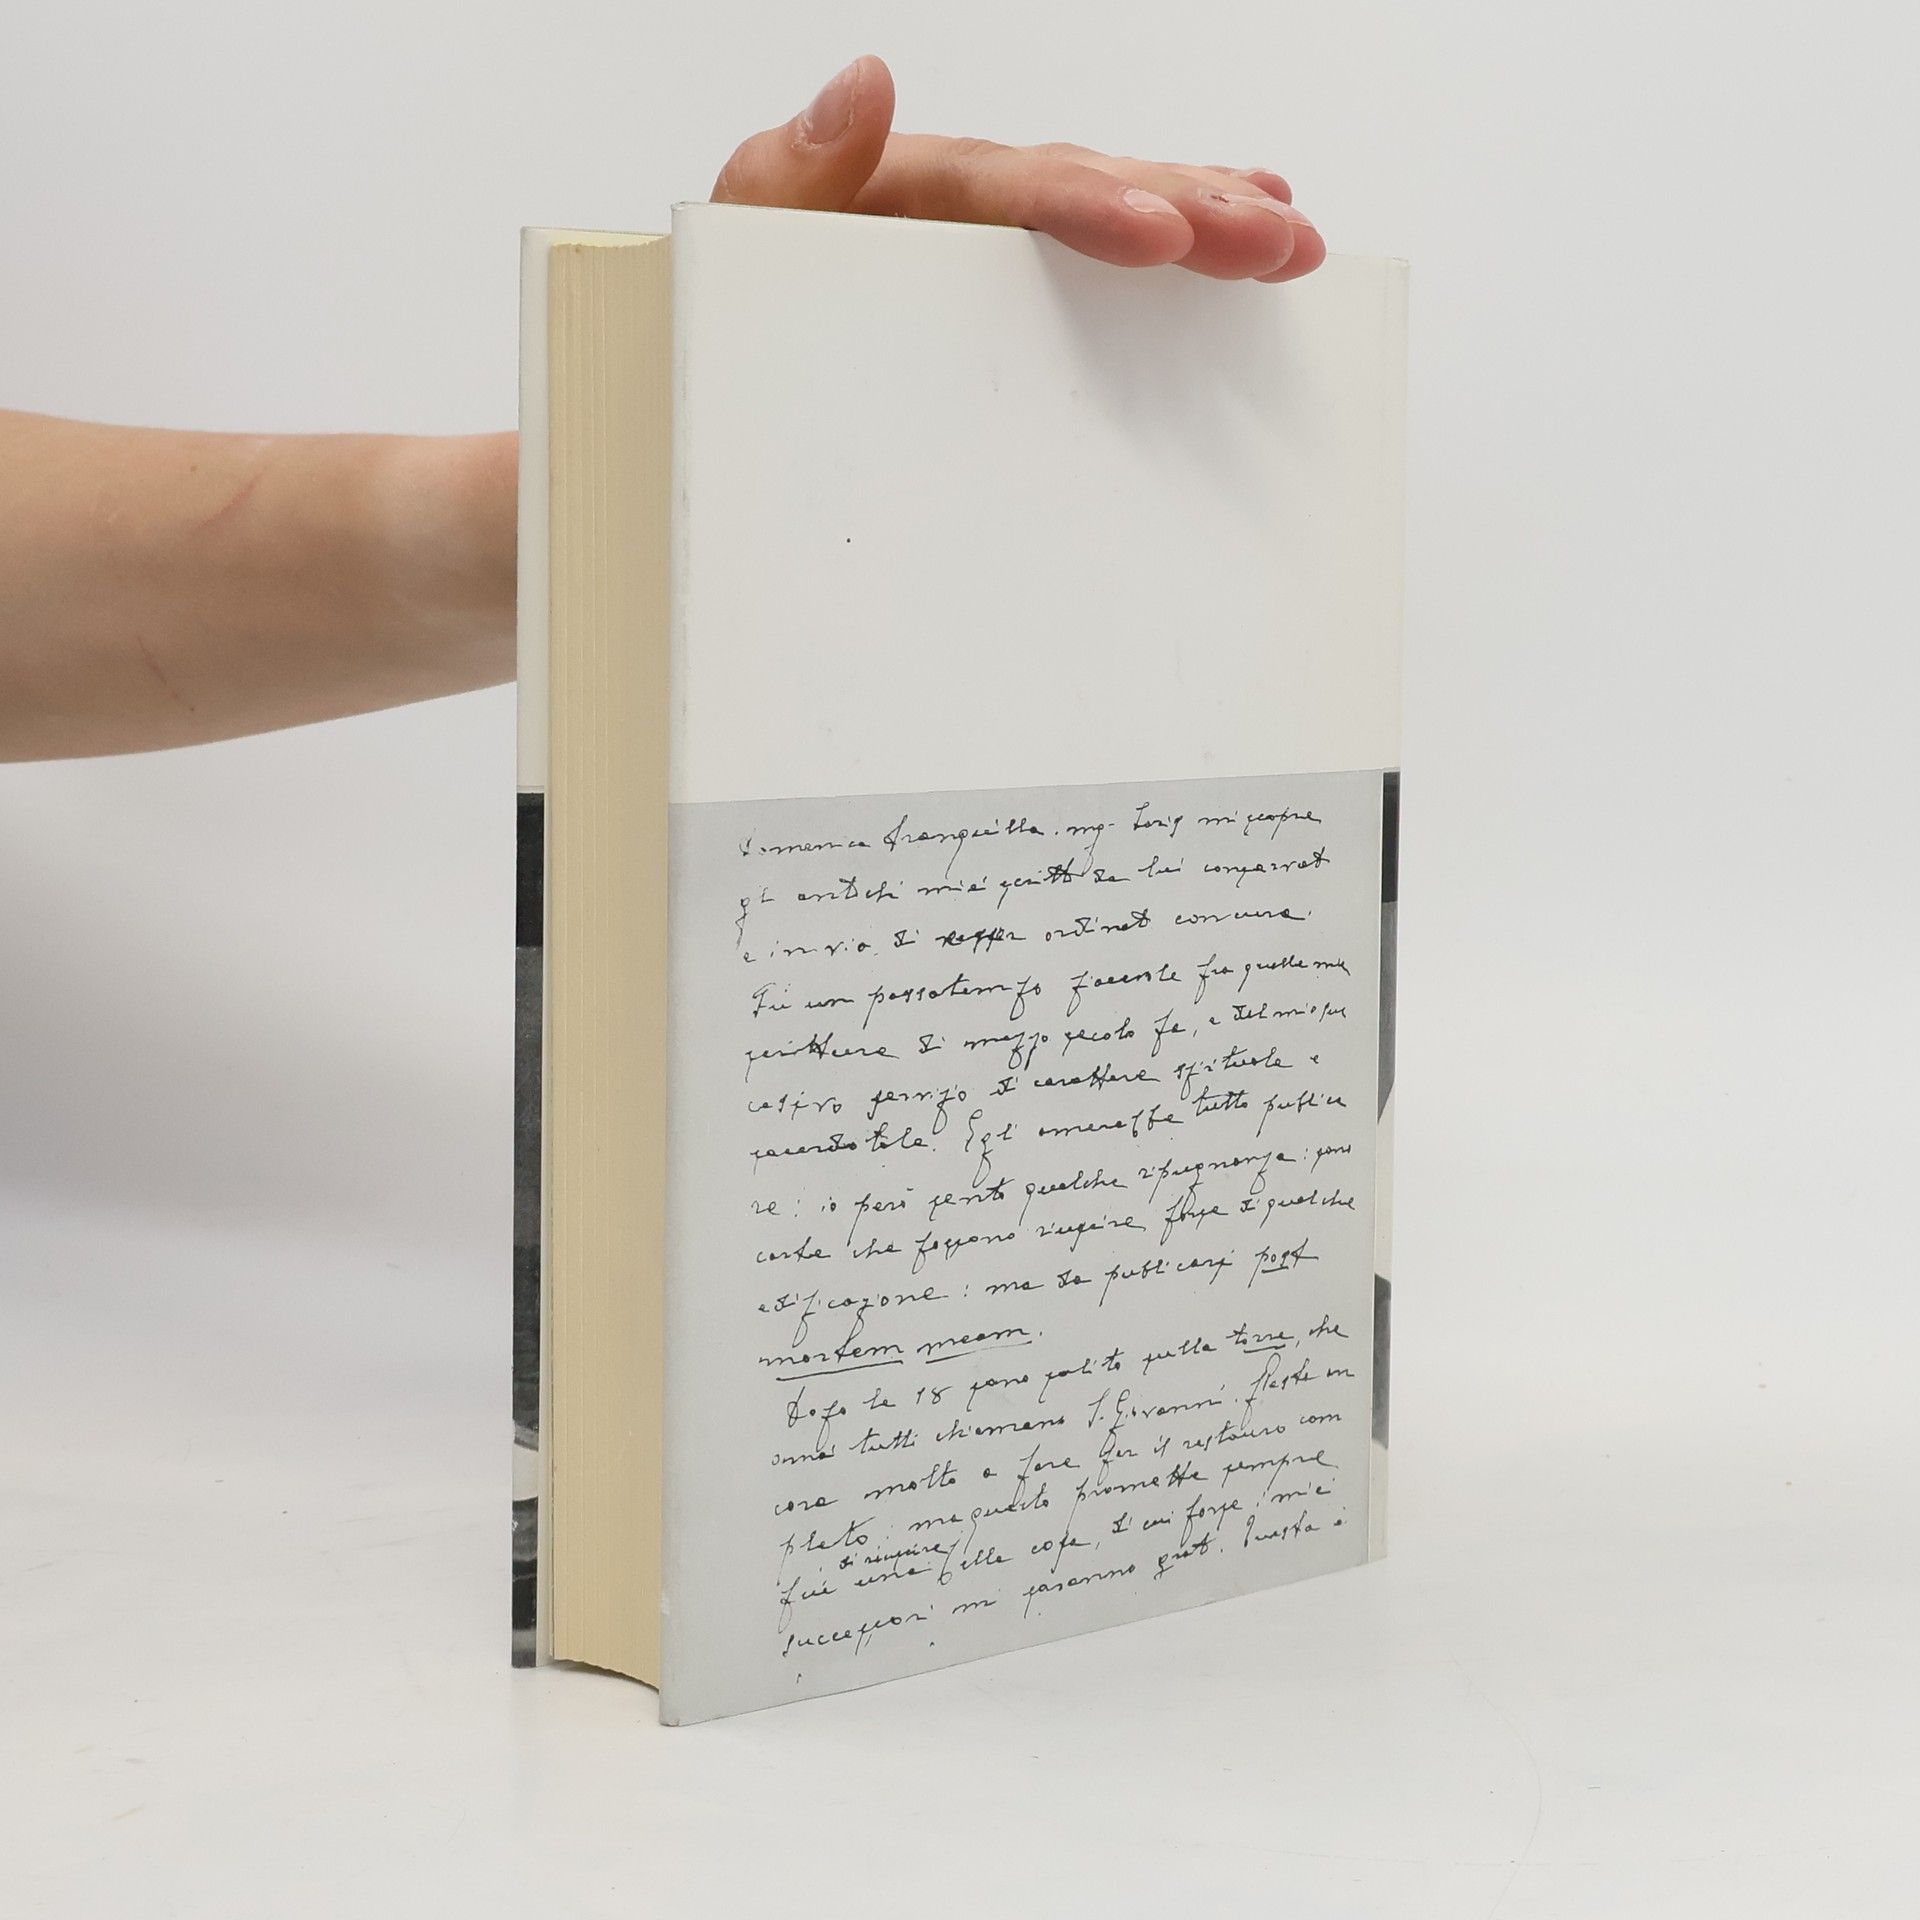 Domenica tranquilla. Mgr Loris mi scopre
gli antichi miei scritti da lui conservati
e invia di ordinati con cura.
Fu un passatempo piacevole fra quelle mie
scritture di mezzo secolo fa, e del mio suc
cesivo servizio di carattere spirituale e
sacerdotale. Egli amerebbe tutto publica
re: io però sento qualche ripugnanza: sono
carte che possono riuscire forse di qualche
edificazione: ma da publicarsi post
mortem meam.
Dopo le 18 sono salito sulla torre, che
ormai tutti chiamano S. Giovanni. Resta an
cora molto a fare per il restauro com
pleto: ma questo promette sempre
di riuscire
più una bella cosa, di cui forse i miei
successori mi saranno grati. Questa è